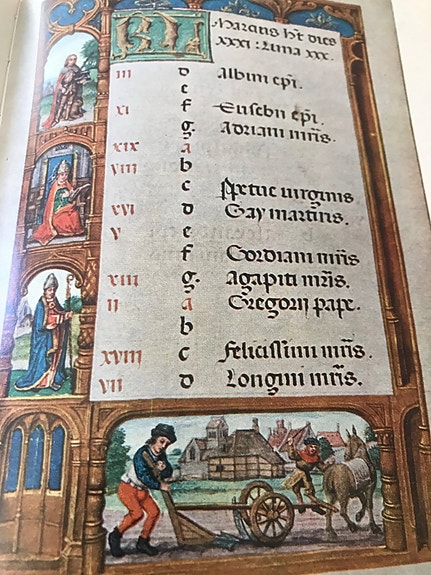 KL Marcius ht dies
xxxi: Luna xxx.
iii d Albini epi.
e
xi f Eusebii epi.
g. Adriani mris.
xix a
viii b
c uirginis
xvi d Gay martiris.
v e
f Gordiani mris
xiii g. Agapiti mris.
ii a Gregorij pape.
b
xviii c Felicissimi mris.
vii d Longini mris.